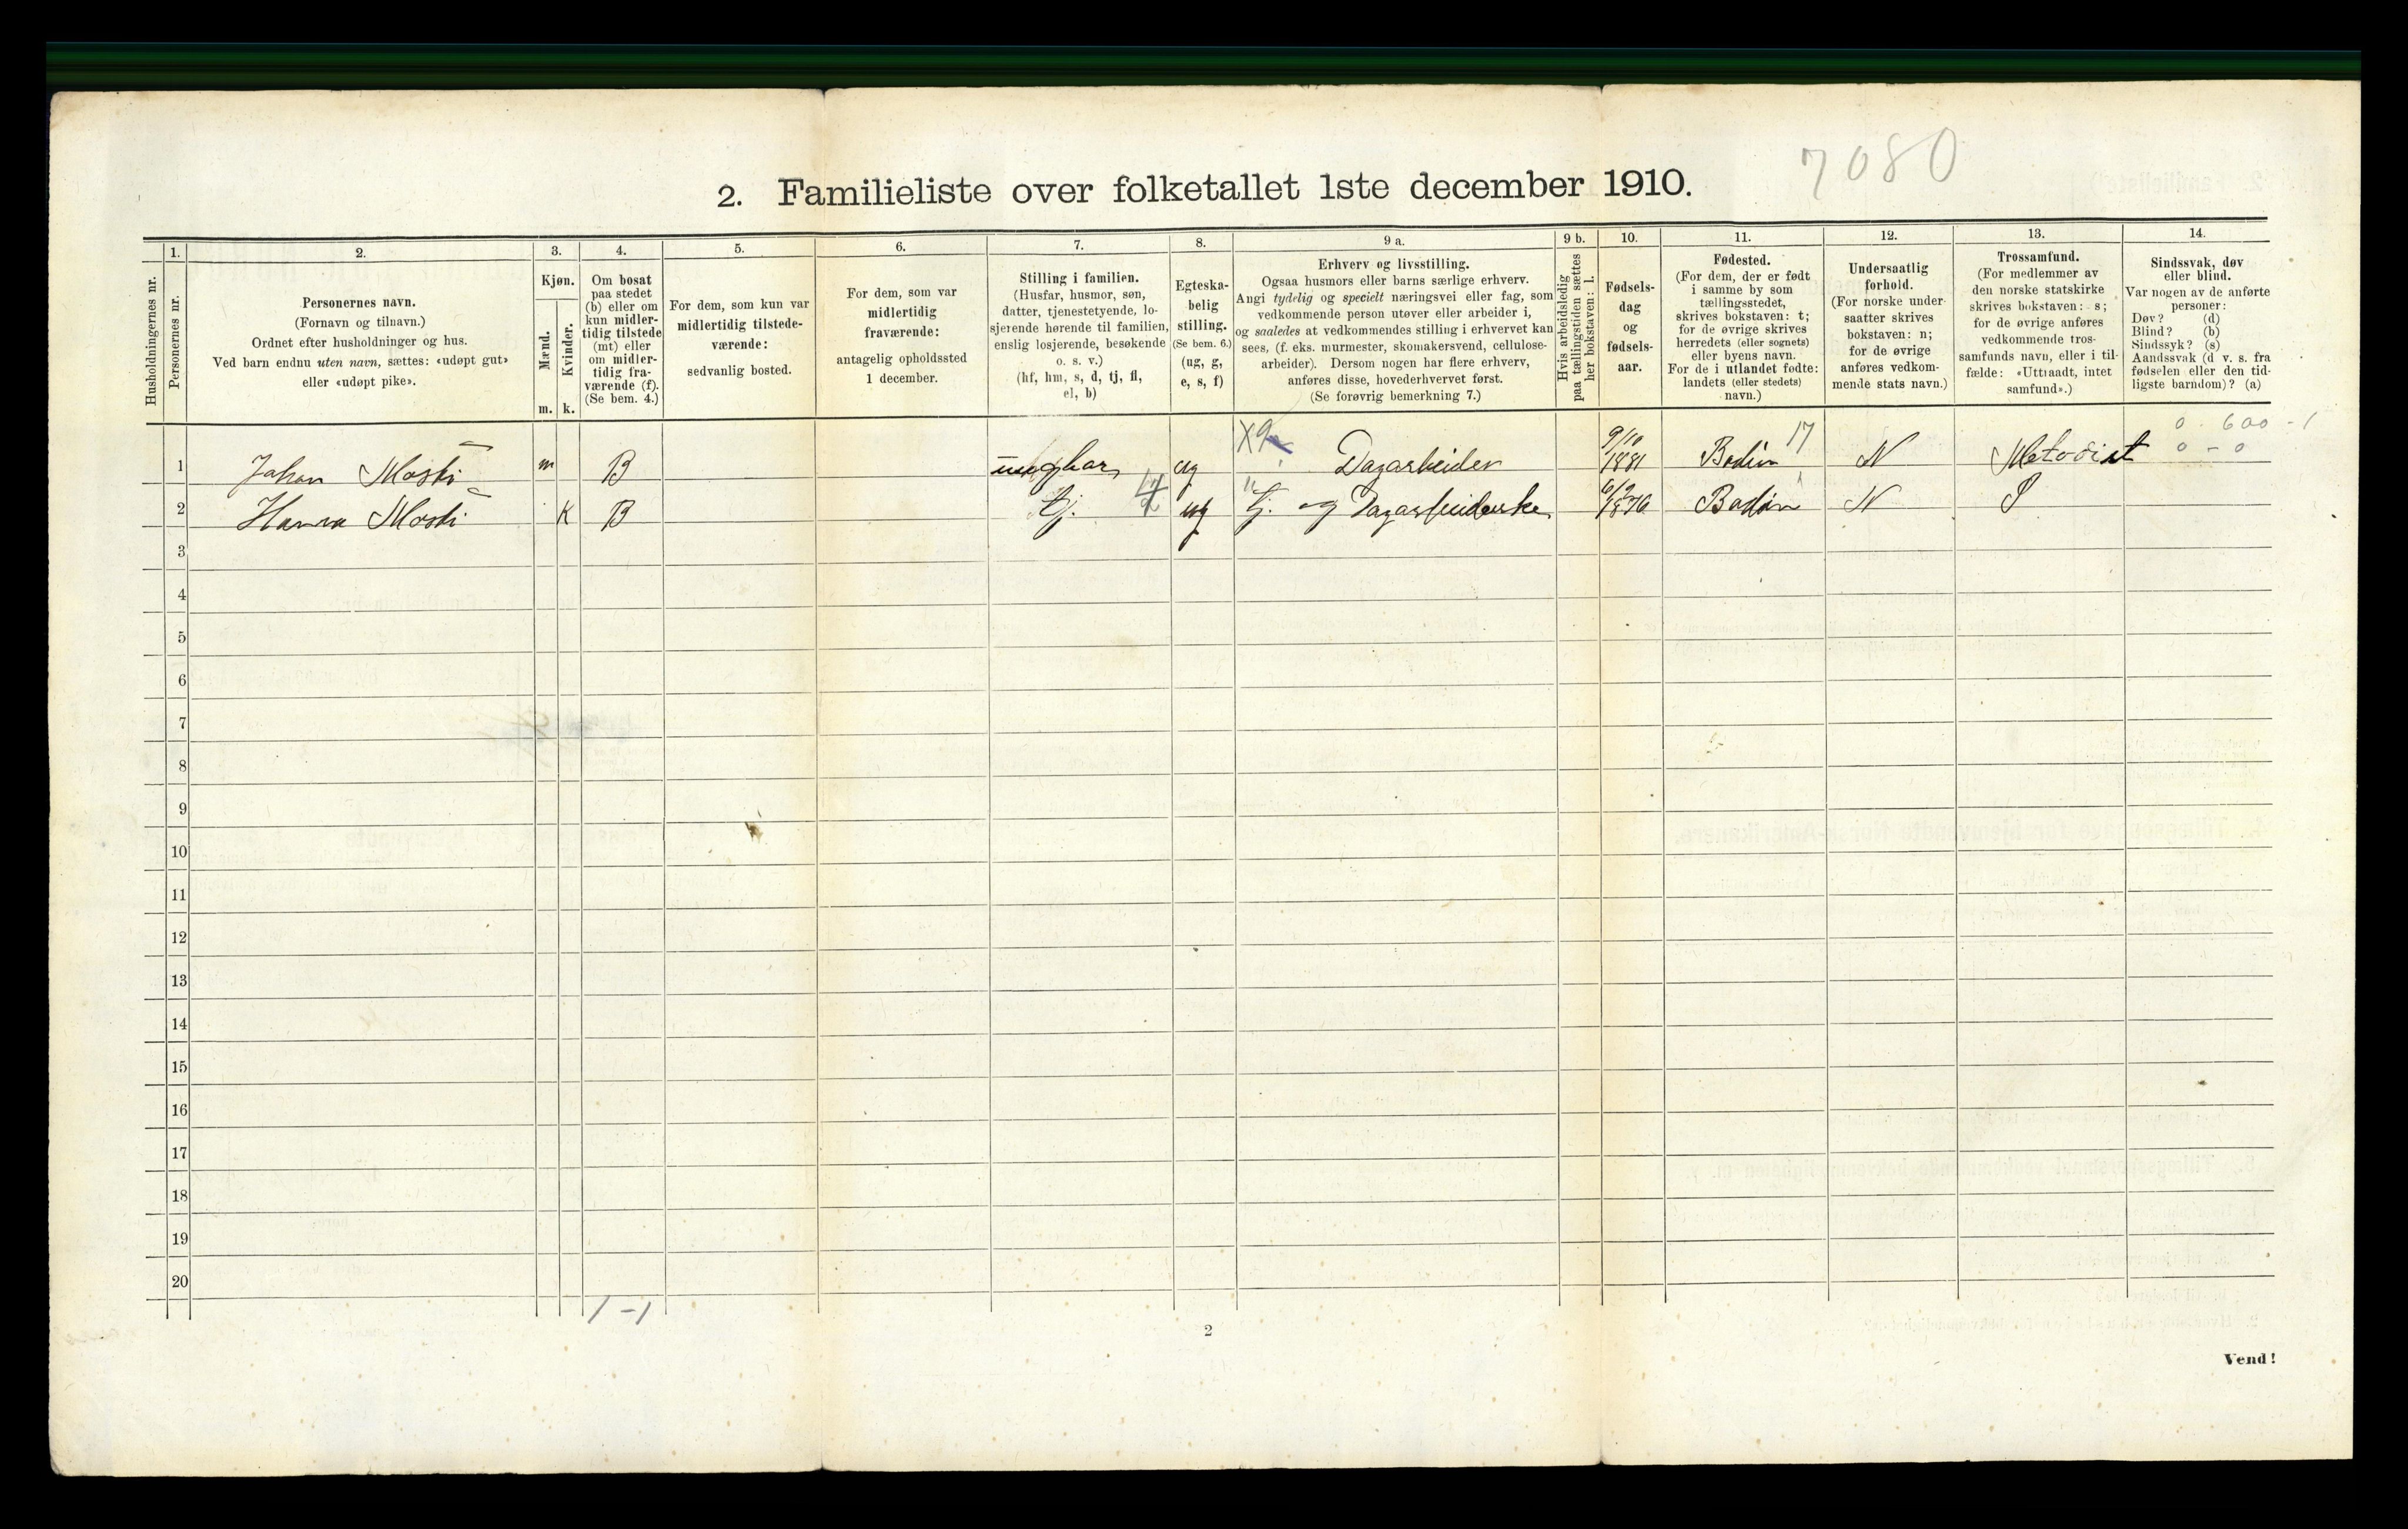 7080
2. Familieliste over folketallet 1ste december 1910.
Husholdningernes nr.
1.
Personernes nr.
2.
Personernes navn.
(Fornavn og tilnavn.)
Ordnet efter husholdninger og hus.
Ved barn endnu uten navn, sættes: «udøpt gut»
eller «udøpt pike».
3.
Kjøn.
Mænd.
Kvinder.
m. k.
4.
Om bosat
paa stedet
(b) eller om
kun midler-
tidig tilstede
(mt) eller
om midler-
tidig fra-
værende (f).
(Se bem. 4.)
5.
For dem, som kun var
midlertidig tilstede-
værende:
sedvanlig bosted.
6.
For dem, som var
midlertidig
fraværende:
antagelig opholdssted
1 december.
7.
Stilling i familien.
(Husfar, husmor, søn,
datter, tjenestetyende, lo-
sjerende hørende til familien,
enslig losjerende, besøkende
o. s. v.)
(hf, hm, s, d, tj, fl,
el, b)
8.
Egteska-
belig
stilling.
(Se bem. 6.)
(ug, g,
e, s, f)
9 a.
Erhverv og livsstilling.
Ogsaa husmors eller barns særlige erhverv.
Angi tydelig og specielt næringsvei eller fag, som
vedkommende person utøver eller arbeider i,
og saaledes at vedkommendes stilling i erhvervet kan
sees, (f. eks. murmester, skomakersvend, cellulose-
arbeider). Dersom nogen har flere erhverv,
anføres disse, hovederhvervet først.
(Se forøvrig bemerkning 7.)
9 b.
Hvis arbeidsledig
paa tællingstiden sættes
her bokstaven: l.
10.
Fødsels-
dag
og
fødsels-
aar.
11.
Fødested.
(For dem, der er født
i samme by som
tællingsstedet,
skrives bokstaven: t;
for de øvrige skrives
herredets (eller sognets)
eller byens navn.
For de i utlandet fødte:
landets (eller stedets)
navn.)
12.
Undersaatlig
forhold.
(For norske under-
saatter skrives
bokstaven: n;
for de øvrige
anføres vedkom-
mende stats navn.)
13.
Trossamfund.
(For medlemmer av
den norske statskirke
skrives bokstaven: s;
for de øvrige anføres
vedkommende tros-
samfunds navn, eller i til-
fælde: «Uttraadt, intet
samfund».)
14.
Sindssvak, døv
eller blind.
Var nogen av de anførte
personer:
Døv? (d)
Blind? (b)
Sindssyk? (s)
Aandssvak (d v. s. fra
fødselen eller den tid-
ligste barndom)? (a)
X9 17 0 - 600 - 1
1 Johan Moski m B ungkar ug Dagarbeider 9/10 1881 Bodin N Metodist 0 - 0
2 Hanna Moski K B tj. ug tj. og Dagarbeiderske 6/9 1876 Bodin N S
3
4
5
6
7
8
9
10
11
12
13
14
15
16
17
18
19
20
1 - 1
2
Vend!